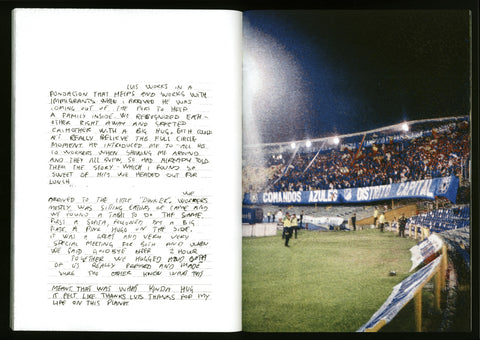 LUIS WORKS IN A
FONDACION THAT HELPS AND WORKS WITH
IMMIGRANTS. WHEN I ARRIVED HE WAS
COMING OUT OF THE DOOR TO HELP
A FAMILY INSIDE. WE RECOGNIZED EACH-
OTHER RIGHT AWAY AND GREETED
EACHOTHER WITH A BIG HUG, BOTH COULD
REALLY BELIEVE THE FULL CIRCLE
MOMENT. HE INTRODUCED ME TO ALL HIS
CO WORKERS WHEN SHOWING ME AROUND
AND THEY ALL KNEW, HE HAD ALREADY TOLD
THEM THE STORY WHICH I FOUND SO
SWEET OF HIM. WE HEADED OUT FOR
LUNCH.
WE
ARRIVED TO THE LITTLE WORKERS
MOSTLY WAS EATING
WE FOUND A TABLE TO DO THE SAME.
FIRST A SOPITA, FOLLOWED BY A BIG
ON THE SIDE.
IT WAS A GREAT AND VERY VERY
SPECIAL MEETING FOR BOTH AND WHEN
WE SAID GOODBYE AFTER 2 HOUR
TOGETHER WE HUGGED AND BOTH
OF US REALLY AND MADE
SURE THE OTHER KNEW WHAT THIS
MEANT. THAT WAS WHAT KINDA HUG
IT FELT LIKE. THANKS LUIS THANKS FOR MY
LIFE ON THIS PLANET.
COMANDOS AZULES DISTRITO CAPITAL